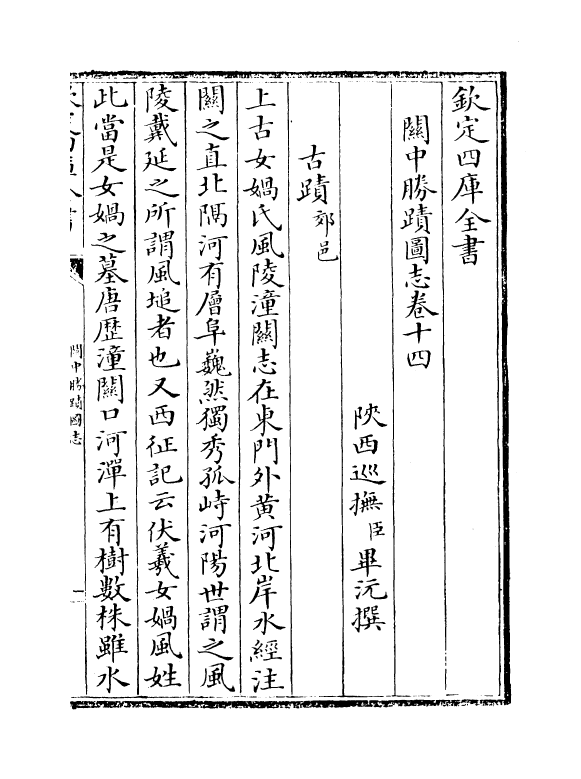 欽定四庫全書
關中勝蹟圖志卷十四
陜西巡撫臣畢沅撰
古蹟郊邑
上古女媧氏風陵潼關志在東門外黄河北岸水經注
關之直北隅河有層阜巍然獨秀孤峙河陽世謂之風
陵戴延之所謂風塠者也又西征記云伏羲女媧風姓
此當是女媧之墓唐歷潼關口河潬上有樹數株雖水
關中勝蹟圖志
一